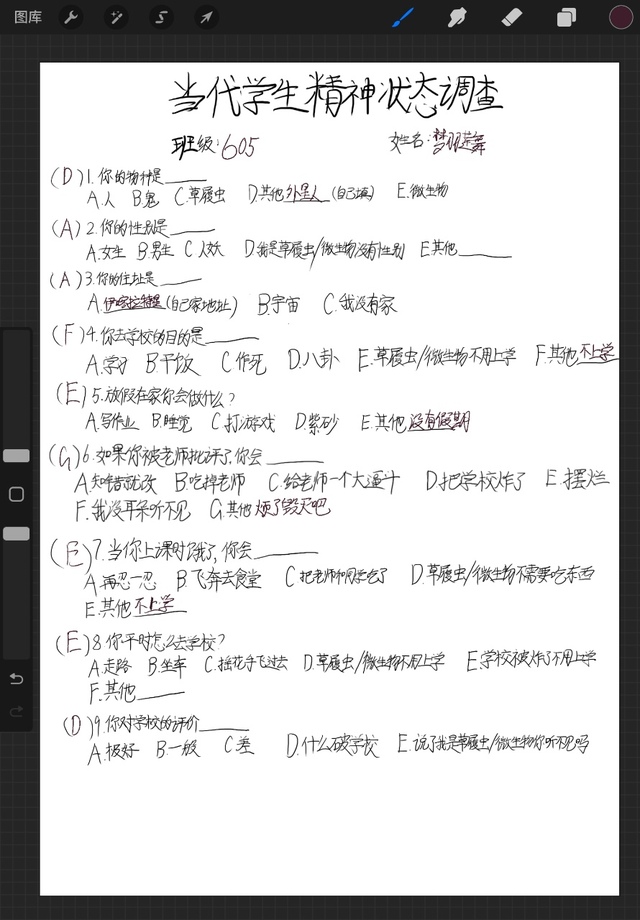 图库
当代学生精神状态调查
班级:605 姓名:梦羽莲舞
(D)1.你的物种是____
A.人 B.鬼 C.草履虫 D.其他外星人(自己填) E.微生物
(A)2.你的性别是____
A.女生 B.男生 C.人妖 D.我是草履虫/微生物没有性别 E.其他____
(A)3.你的住址是____
A.(自己家地址) B.宇宙 C.我没有家
(F)4.你去学校的目的是____
A.学习 B.干饭 C.作死 D.八卦 E.草履虫/微生物不用上学 F.其他不上学
(E)5.放假在家你会做什么?
A.写作业 B.睡觉 C.打游戏 D.紫砂 E.其他没有假期
(G)6.如果你被老师批评了,你会____
A.知错就改 B.吃掉老师 C.给老师一个大逼斗 D.把学校炸了 E.摆烂
F.我没耳朵听不见 G.其他烦了毁灭吧
(E)7.当你上课时饿了,你会____
A.再忍一忍 B.飞奔去食堂 C.把老师和同学吃了 D.草履虫/微生物不需要吃东西
E.其他不上学
(E)8.你平时怎么去学校?
A.走路 B.坐车 C.摇花手飞过去 D.草履虫/微生物不用上学 E.学校被炸了不用上学
F.其他____
(D)9.你对学校的评价____
A.极好 B.一般 C.差 D.什么破学校 E.说了我是草履虫/微生物你听不见吗